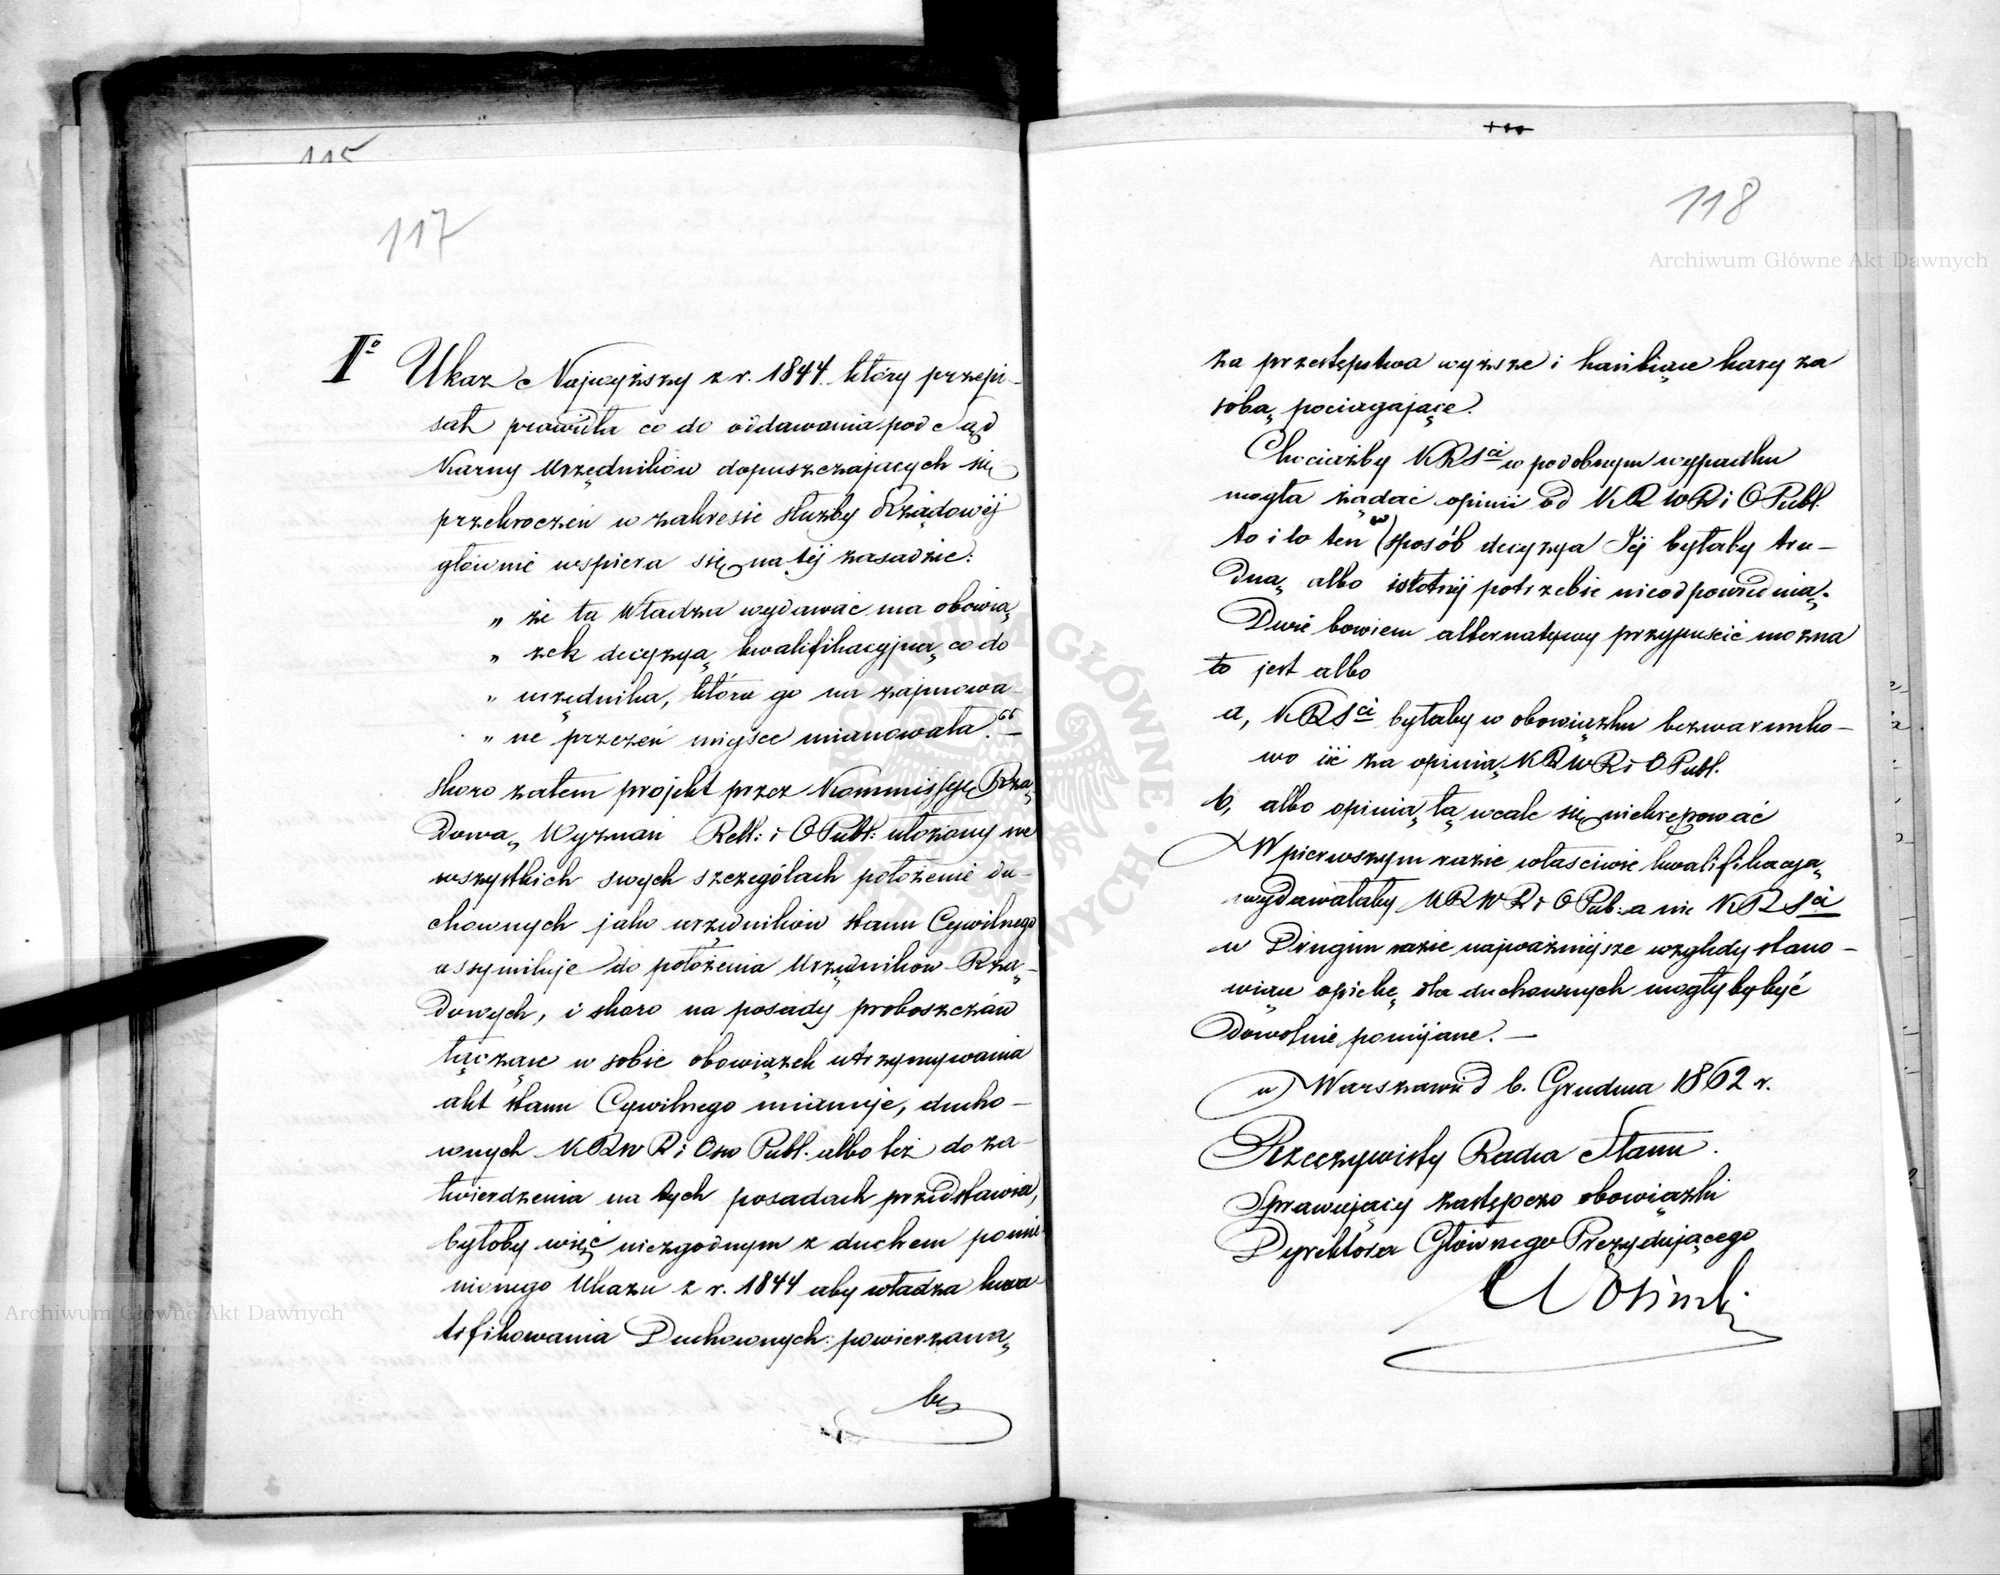 115
117
Iº Ukaz Najwyższy z r. 1844. który przepi-
sał prawidła co do oddawania pod Sąd
Karny Urzędników dopuszczających się
przekroczeń w zakresie służby Rządowéj
głównie wspiera się na téj zasadzie:
„ że ta Władza wydawać ma obowią
„ zek decyzyą kwalifikacyjną co do
„ urzędnika, która go na zajmowa-
„ ne przezeń miejsce mianowała.“ —
skoro zatem projekt przez Kommissyę Rzą
dową Wyznań Rell: i O Publ: ułożony we
wszystkich swych szczegółach położenie du-
chownych jako urzędników stanu Cywilnego
assymiluje do położenia Urzędników Rzą-
dowych, i skoro na posady proboszczów
łączące w sobie obowiązek utrzymywania
akt stanu Cywilnego mianuje, ducho-
wnych KRW R i Ośw Publ. albo też do za-
twierdzenia na tych posadach przedstawia,
byłoby więc niezgodnym z duchem pomie
nionego Ukazu z r. 1844 aby władza kwa
lifikowania Duchownych: powierzaną
by
118
za przestępstwa wyższe i hańbiące kary za
sobą pociągające.
Chociażby KRSci w podobnym wypadku
mogła żądać opinii od KR WR i O Publ.
to i to ten w sposób decyzya Jéj byłaby tru-
dną albo istotnéj potrzebie nieodpowiednią.
Dwie bowiem alternatywy przypuścić można
to jest albo
a, KRSci byłaby w obowiązku bezwarunko-
wo iść za opinią KRWR i O Publ.
b, albo opinią tą wcale się niekrępować
W pierwszym razie właściwie kwalifikacyą
wydawałaby KRWR i O Pub: a nie KRSci
w Drugim razie najważniejsze względy stano-
wiące opiekę dla duchownych mogłyby być
dowolnie pomijane. —
w Warszawie d 6. Grudnia 1862 r.
Rzeczywisty Radca Stanu.
Sprawujący zastępczo obowiązki
Dyrektora Głównego Prezydującego
Archiwum Główne Akt Dawnych
Archiwum Główne Akt Dawnych